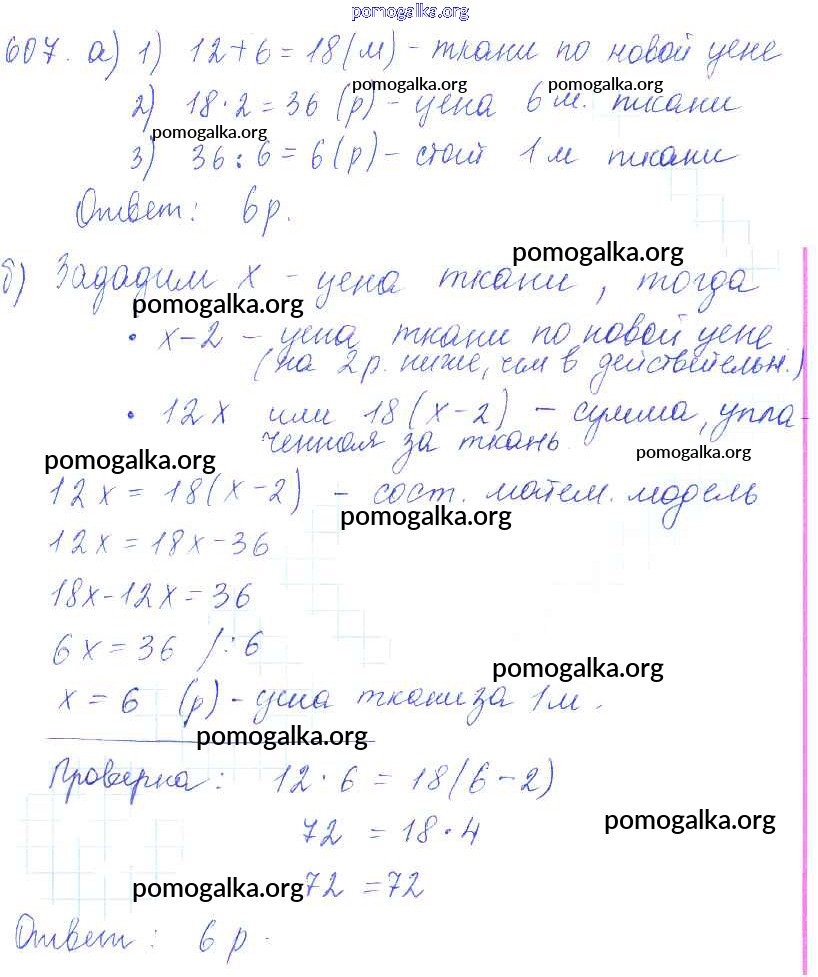 pomogalka.org
607. а) 1) 12+6=18(м) - ткани по новой цене
pomogalka.org pomogalka.org
2) 18·2=36 (р) - цена 6 м. ткани
pomogalka.org
3) 36:6=6(р) - стоит 1 м ткани
Ответ: 6р.
pomogalka.org
б) Зададим х - цена ткани, тогда
pomogalka.org
• х-2 - цена ткани по новой цене
(на 2р. ниже, чем в действительн.)
• 12х или 18(х-2) - сумма, упла-
ченная за ткань
pomogalka.org pomogalka.org
12х=18(х-2) - сост. матем. модель
pomogalka.org
12х=18х-36
18х-12х=36
6х=36 /:6
pomogalka.org
х=6 (р) - цена ткани за 1м.
pomogalka.org
Проверка: 12·6=18(6-2)
72=18·4
pomogalka.org
72=72
pomogalka.org
Ответ: 6р.